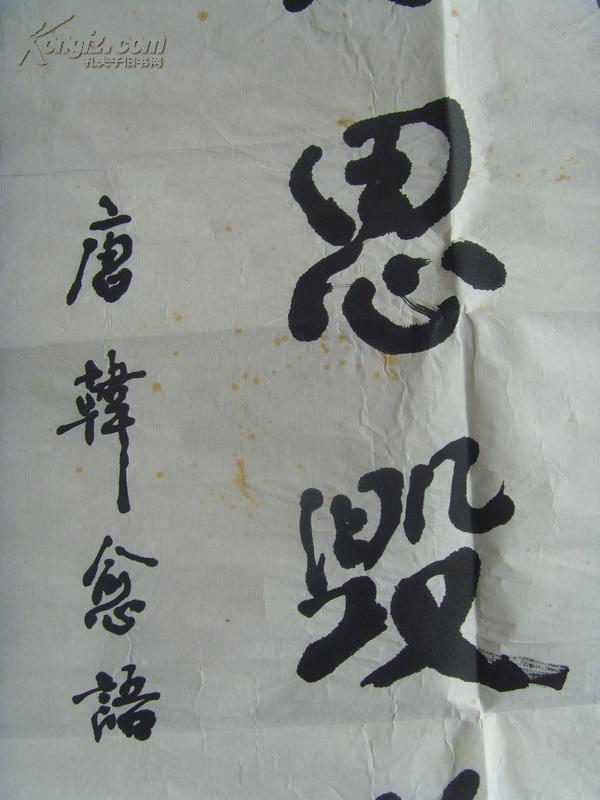 思毀
唐韓愈語
Kongfz.com
孔夫子旧书网